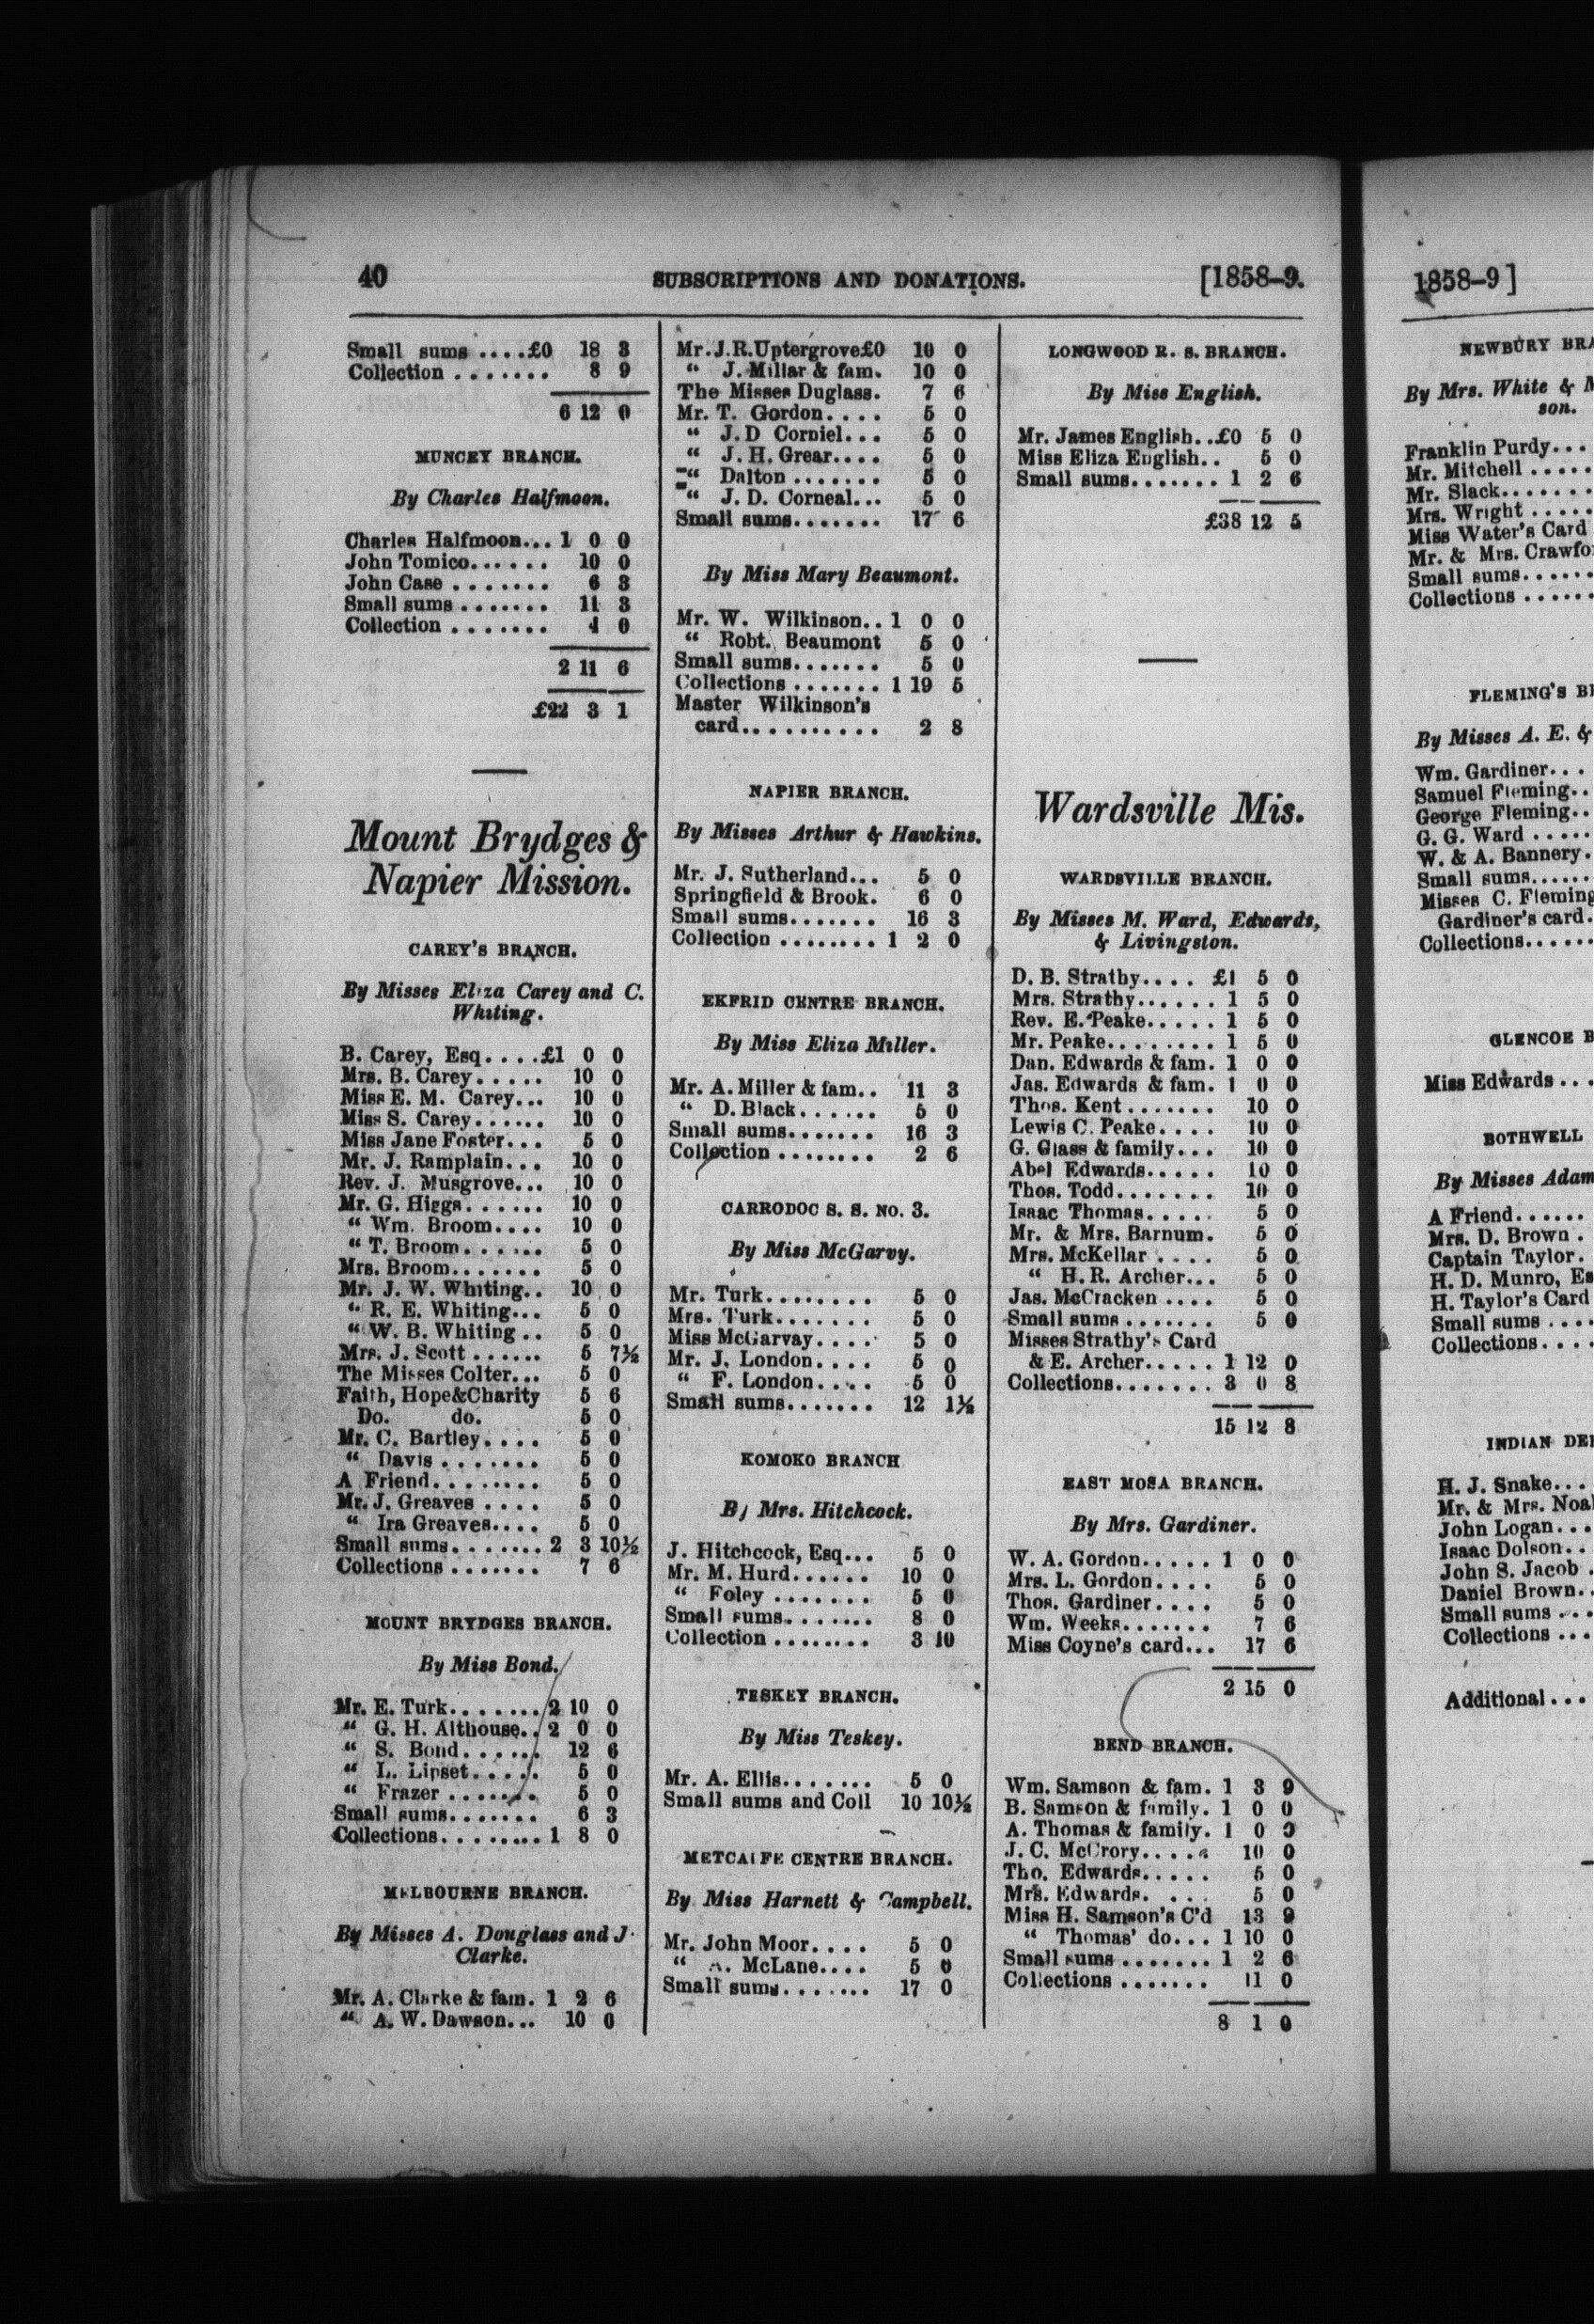 40 SUBSCRIPTIONS AND DONATIONS. [1858-9.
Small sums ....£0 18 3
Collection ....... 8 9
6 12 0
MUNCEY BRANCH.
By Charles Halfmoon.
Charles Halfmoon... 1 0 0
John Tomico...... 10 0
John Case ....... 6 3
Small sums ....... 11 3
Collection ....... 4 0
2 11 6
£22 3 1
Mount Brydges &
Napier Mission.
CAREY'S BRANCH.
By Misses Eliza Carey and C.
Whiting.
B. Carey, Esq....£1 0 0
Mrs. B. Carey..... 10 0
Miss E. M. Carey... 10 0
Miss S. Carey...... 10 0
Miss Jane Foster... 5 0
Mr. J. Ramplain... 10 0
Rev. J. Musgrove... 10 0
Mr. G. Higgs...... 10 0
“ Wm. Broom.... 10 0
“ T. Broom...... 5 0
Mrs. Broom....... 5 0
Mr. J. W. Whiting.. 10 0
“ R. E. Whiting... 5 0
“ W. B. Whiting .. 5 0
Mrs. J. Scott ...... 5 7½
The Misses Colter... 5 0
Faith, Hope&Charity 5 6
Do. do. 5 0
Mr. C. Bartley.... 5 0
“ Davis ....... 5 0
A Friend......... 5 0
Mr. J. Greaves .... 5 0
“ Ira Greaves.... 5 0
Small sums....... 2 3 10½
Collections ....... 7 6
MOUNT BRYDGES BRANCH.
By Miss Bond.
Mr. E. Turk........ 2 10 0
“ G. H. Althouse.. 2 0 0
“ S. Bond...... 12 6
“ L. Lipset..... 5 0
“ Frazer ....... 5 0
Small sums....... 6 3
Collections......... 1 8 0
MELBOURNE BRANCH.
By Misses A. Douglass and J.
Clarke.
Mr. A. Clarke & fam. 1 2 6
“ A. W. Dawson... 10 0
Mr. J.R.Uptergrove£0 10 0
“ J. Millar & fam. 10 0
The Misses Duglass. 7 6
Mr. T. Gordon.... 5 0
“ J. D Corniel... 5 0
“ J. H. Grear.... 5 0
“ Dalton ....... 5 0
“ J. D. Corneal... 5 0
Small sums....... 17 6
By Miss Mary Beaumont.
Mr. W. Wilkinson.. 1 0 0
“ Robt. Beaumont 5 0
Small sums....... 5 0
Collections ....... 1 19 5
Master Wilkinson's
card.......... 2 8
NAPIER BRANCH.
By Misses Arthur & Hawkins.
Mr. J. Sutherland... 5 0
Springfield & Brook. 6 0
Small sums....... 16 3
Collection ........ 1 2 0
EKFRID CENTRE BRANCH.
By Miss Eliza Miller.
Mr. A. Miller & fam.. 11 3
“ D. Black...... 5 0
Small sums....... 16 3
Collection ........ 2 6
CARRODOC S. S. NO. 3.
By Miss McGarvy.
Mr. Turk......... 5 0
Mrs. Turk....... 5 0
Miss McGarvay.... 5 0
Mr. J. London.... 5 0
“ F. London.... 5 0
Small sums....... 12 1½
KOMOKO BRANCH
By Mrs. Hitchcock.
J. Hitchcock, Esq... 5 0
Mr. M. Hurd...... 10 0
“ Foley ....... 5 0
Small sums....... 8 0
Collection ........ 3 10
TESKEY BRANCH.
By Miss Teskey.
Mr. A. Ellis....... 5 0
Small sums and Coll 10 10½
METCALFE CENTRE BRANCH.
By Miss Harnett & Campbell.
Mr. John Moor.... 5 0
“ A. McLane.... 5 0
Small sums....... 17 0
LONGWOOD R. S. BRANCH.
By Miss English.
Mr. James English..£0 5 0
Miss Eliza English.. 5 0
Small sums....... 1 2 6
£38 12 5
Wardsville Mis.
WARDSVILLE BRANCH.
By Misses M. Ward, Edwards,
& Livingston.
D. B. Strathy.... £1 5 0
Mrs. Strathy...... 1 5 0
Rev. E. Peake..... 1 5 0
Mr. Peake......... 1 5 0
Dan. Edwards & fam. 1 0 0
Jas. Edwards & fam. 1 0 0
Thos. Kent ....... 10 0
Lewis C. Peake.... 10 0
G. Glass & family... 10 0
Abel Edwards..... 10 0
Thos. Todd....... 10 0
Isaac Thomas..... 5 0
Mr. & Mrs. Barnum. 5 0
Mrs. McKellar .... 5 0
“ H. R. Archer... 5 0
Jas. McCracken .... 5 0
Small sums ....... 5 0
Misses Strathy's Card
& E. Archer..... 1 12 0
Collections....... 3 0 8
15 12 8
EAST MOSA BRANCH.
By Mrs. Gardiner.
W. A. Gordon..... 1 0 0
Mrs. L. Gordon.... 5 0
Thos. Gardiner.... 5 0
Wm. Weeks....... 7 6
Miss Coyne's card... 17 6
2 15 0
BEND BRANCH.
Wm. Samson & fam. 1 3 9
B. Samson & family. 1 0 0
A. Thomas & family. 1 0 0
J. C. McCrory..... 10 0
Tho. Edwards..... 5 0
Mrs. Edwards. ... 5 0
Miss H. Samson's C'd 13 9
“ Thomas' do... 1 10 0
Small sums ....... 1 2 6
Collections ....... 11 0
8 1 0
1858-9]
NEWBURY BRA
By Mrs. White & M
son.
Franklin Purdy...
Mr. Mitchell .....
Mr. Slack.......
Mrs. Wright .....
Miss Water's Card
Mr. & Mrs. Crawfo
Small sums......
Collections ......
FLEMING'S B
By Misses A. E. &
Wm. Gardiner...
Samuel Fleming..
George Fleming..
G. G. Ward .....
W. & A. Bannery.
Small sums......
Misses C. Fleming
Gardiner's card.
Collections......
GLENCOE B
Miss Edwards ...
BOTHWELL
By Misses Adam
A Friend......
Mrs. D. Brown .
Captain Taylor.
H. D. Munro, Es
H. Taylor's Card
Small sums ....
Collections....
INDIAN DE
H. J. Snake...
Mr. & Mrs. Noa
John Logan...
Isaac Dolson..
John S. Jacob .
Daniel Brown..
Small sums ...
Collections ...
Additional ...